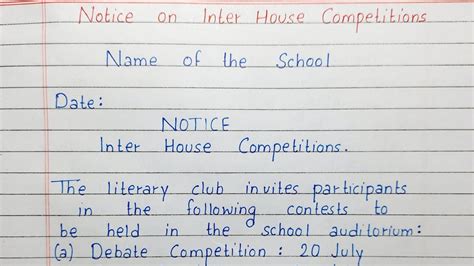 Notice on Inter House Competitions
Name of the School
Date:
NOTICE
Inter House Competitions.
The literary club invites participants
in the following contests to
be held in the school auditorium:
(a) Debate Competition : 20 July